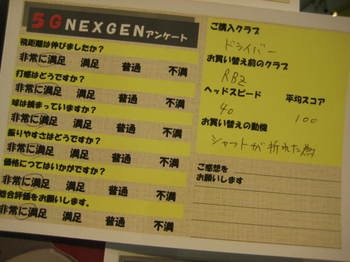 5G NEXGENアンケート
飛距離は伸びましたか?
非常に満足 満足 普通 不満
打感はどうですか?
非常に満足 満足 普通 不満
球は捕まっていますか?
非常に満足 満足 普通 不満
振りやすさはどうですか?
非常に満足 満足 普通 不満
価格につてはいかがですか?
非常に満足 満足 普通 不満
総合評価をお願します。
非常に満足 満足 普通 不満
ご購入クラブ
ドライバー
お買い替え前のクラブ
RBZ
ヘッドスピード 平均スコア
40 100
お買い替えの動機
シャフトが折れた為
ご感想を
お願いします